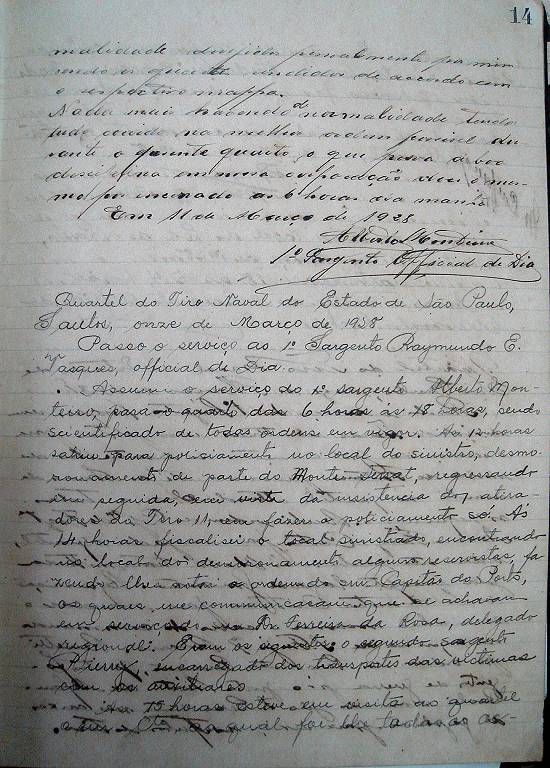 14
malidade dirigida pessoalmente por mim
sendo a guarda rendida de accordo com
o respectivo mappa.
Nada mais havendo de normalidade tendo
tudo corrido na melhor ordem possivel du-
rante o quarto, o que para
as 6 horas da manhã
Em 11 de Março de 1928
Alberto Monteiro
1º Sargento Official de Dia
Quartel do Tiro Naval do Estado de São Paulo,
Santos, onze de Março de 1928
Passo o serviço ao 1º Sargento Raymundo E.
Vasques, official de Dia.
Assumi o serviço do 1º sargento Alberto Mon-
teiro, para o quarto das 6 horas ás 18 horas, sendo
scientificado de todas ordens em vigor. Ás 12 horas
para policiamento no local do sinistro, desmo-
ronamento de parte do Monte Serrat, regressando
em seguida, em vista da insistencia dos atira-
dores do Tiro 11, em fazer o policiamento só. Ás
14 horas fiscalisei o local sinistrado, encontrando
no local do desmoronamento alguns reservistas, fa-
zendo lhe notar a ordem do snr Capitão do Porto,
os quais, me communicaram que se achavam
em serviço do Dr. Ferreira da Rosa, delegado
regional. Eram os seguintes: o segundo sargento
Pierrey, encarregado dos transportes das victimas
com os auxiliares
As 15 horas esteve em visita ao quartel
qual foi lhe